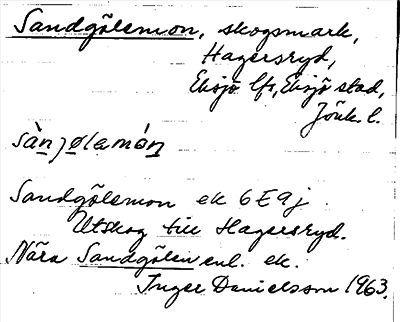 Sandgölemon, skogsmark,
Hagersryd,
Eksjö lfs, Eksjö stad,
Jönk. l.
sàn̠jø̠la̠món̠
Sandgölemon ek 6E9j.
Utskog till Hagersryd.
Nära Sandgölen enl. ek.
Inger Danielsson 1963.